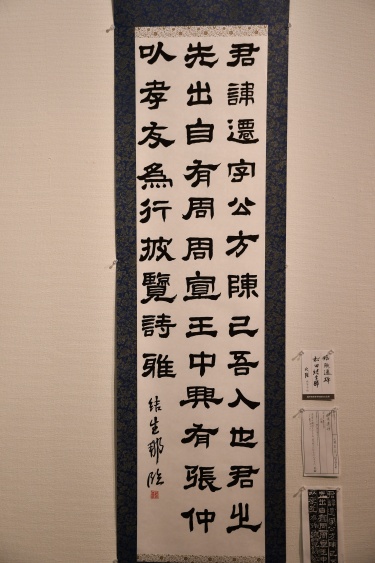 君諱遷字公方陳己吾人也君之
先出自有周周宣王中興有張仲
以孝友為行披覽詩雅
結生那臨